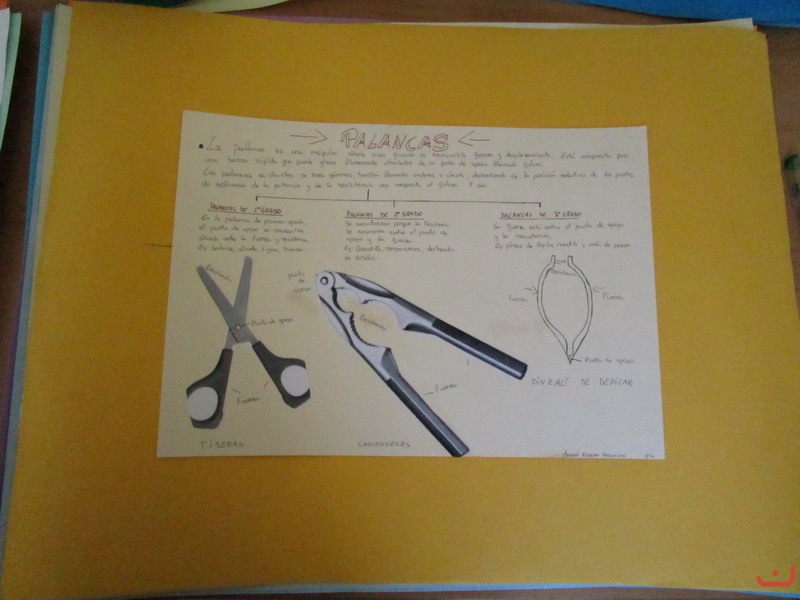 PALANCAS
• La palanca es una máquina simple cuya función es transmitir fuerza y desplazamiento. Está compuesta por
una barra rígida que puede girar libremente alrededor de un punto de apoyo llamado fulcro.
Las palancas se dividen en tres géneros, también llamados ordenes o clases, dependiendo de la posición relativa de los puntos
de aplicación de la potencia y de la resistencia con respecto al fulcro. Y son:
PALANCAS DE 1º GRADO
En la palanca de primer grado,
el punto de apoyo se encuentra
situado entre la fuerza y resistencia.
Ej: balanza, alicate, tijera,
PALANCAS DE 2º GRADO
Se caracterizan porque la Resistencia
se encuentra entre el punto de
apoyo y la fuerza.
Ej: Carretilla, cascanueces, destapador
de botellas.
PALANCAS DE 3º GRADO
La fuerza está entre el punto de apoyo
y la resistencia.
Ej: pinzas de depilar, martillo y caña de pescar
Resistencia
Punto de apoyo
Fuerza
TISERAS
punto
de
apoyo
Resistencia
Fuerza
CASCANUECES
Resistencia
Fuerza
Fuerza
Punto de apoyo
DE DEPILAR